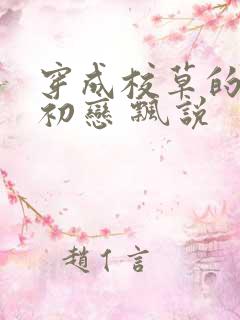 穿成校草的
初戀 飄説
趙亻言